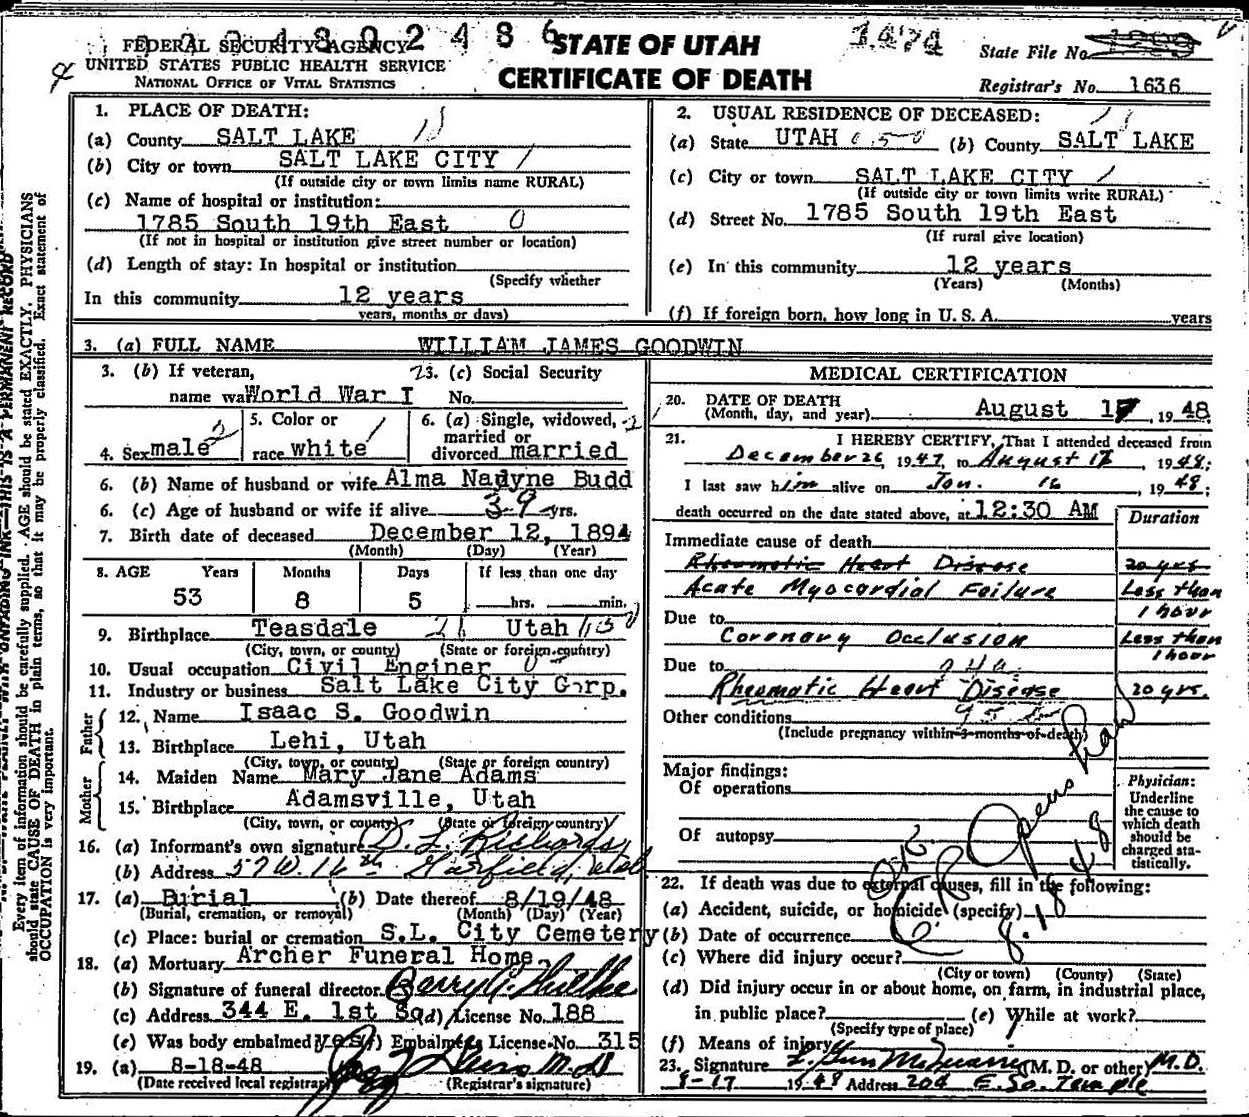 FEDERAL SECURITY AGENCY
UNITED STATES PUBLIC HEALTH SERVICE
NATIONAL OFFICE OF VITAL STATISTICS
STATE OF UTAH
CERTIFICATE OF DEATH
1474
State File No.
Registrar's No. 1636
1. PLACE OF DEATH:
(a) County SALT LAKE
(b) City or town SALT LAKE CITY
(If outside city or town limits name RURAL)
(c) Name of hospital or institution:
1785 South 19th East 0
(If not in hospital or institution give street number or location)
(d) Length of stay: In hospital or institution
(Specify whether
In this community 12 years
years, months or days)
2. USUAL RESIDENCE OF DECEASED:
(a) State UTAH (b) County SALT LAKE
(c) City or town SALT LAKE CITY
(If outside city or town limits write RURAL)
(d) Street No. 1785 South 19th East
(If rural give location)
(e) In this community 12 years
(Years) (Months)
(f) If foreign born, how long in U. S. A. years
3. (a) FULL NAME WILLIAM JAMES GOODWIN
3. (b) If veteran,
name war World War I
3. (c) Social Security
No.
4. Sex male
5. Color or
race white
6. (a) Single, widowed,
married or
divorced married
6. (b) Name of husband or wife Alma Nadyne Budd
6. (c) Age of husband or wife if alive 39 yrs.
7. Birth date of deceased December 12, 1894
(Month) (Day) (Year)
8. AGE Years Months Days If less than one day
53 8 5 hrs. min.
9. Birthplace Teasdale Utah
(City, town, or county) (State or foreign country)
10. Usual occupation Civil Enginer
11. Industry or business Salt Lake City Corp.
Father
12. Name Isaac S. Goodwin
13. Birthplace Lehi, Utah
(City, town, or county) (State or foreign country)
Mother
14. Maiden Name Mary Jane Adams
15. Birthplace Adamsville, Utah
(City, town, or county) (State or foreign country)
16. (a) Informant's own signature D. L. Richards
(b) Address 57 W. 16th Garfield, Utah
17. (a) Burial (b) Date thereof 8/19/48
(Burial, cremation, or removal) (Month) (Day) (Year)
(c) Place: burial or cremation S.L. City Cemetery
18. (a) Mortuary Archer Funeral Home
(b) Signature of funeral director
(c) Address 344 E. 1st So. (d) License No. 188
(e) Was body embalmed yes (f) Embalmers License No. 315
19. (a) 8-18-48 M.D.
(Date received local registrar) (Registrar's signature)
MEDICAL CERTIFICATION
20. DATE OF DEATH
(Month, day, and year) August 17, 1948
21. I HEREBY CERTIFY, That I attended deceased from
December 26, 1947, to August 17, 1948;
I last saw him alive on Jan. 16, 1948;
death occurred on the date stated above, at 12:30 AM
Duration
Immediate cause of death
Rheumatic Heart Disease 20 yrs
Acute Myocardial Failure Less than 1 hour
Due to
Coronary Occlusion Less than 1 hour
Due to
Rheumatic Heart Disease 20 yrs.
Other conditions
(Include pregnancy within 3 months of death)
Major findings:
Of operations
Of autopsy
Physician:
Underline
the cause to
which death
should be
charged sta-
tistically.
22. If death was due to external causes, fill in the following:
(a) Accident, suicide, or homicide (specify)
(b) Date of occurrence
(c) Where did injury occur?
(City or town) (County) (State)
(d) Did injury occur in or about home, on farm, in industrial place,
in public place? (e) While at work?
(Specify type of place)
(f) Means of injury
23. Signature (M. D. or other) M.D.
8-17 1948 Address 209 E. So. Temple
O.K.
8.18.48
Every item of information should be carefully supplied. AGE should be stated EXACTLY. PHYSICIANS
should state CAUSE OF DEATH in plain terms, so that it may be properly classified. Exact statement of
OCCUPATION is very important.